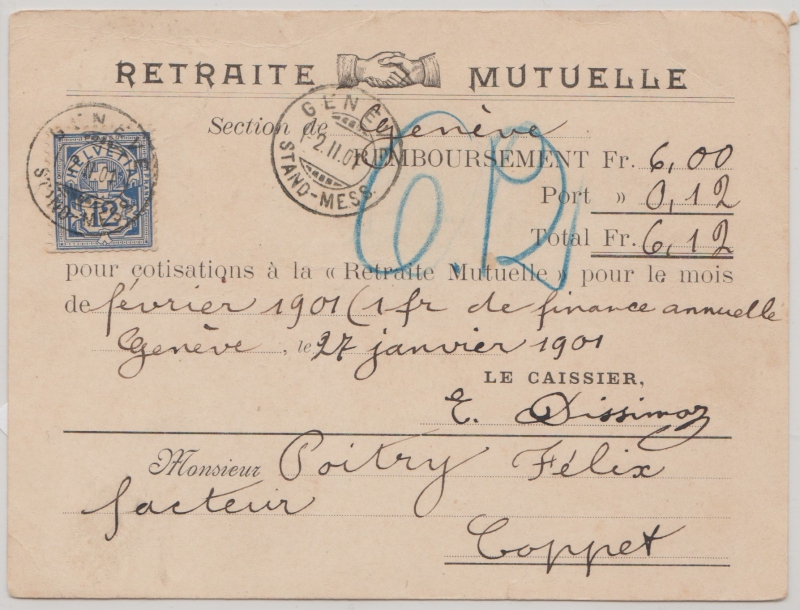 RETRAITE MUTUELLE
Section de Genève
REMBOURSEMENT Fr. 6,00
Port » 0,12
Total Fr. 6,12
pour cotisations à la « Retraite Mutuelle » pour le mois
de février 1901 (1 fr de finance annuelle
Genève, le 27 janvier 1901
LE CAISSIER,
E. Dissimoz
Monsieur Poitry Félix
facteur
Coppet
HELVETIA
12
GENÈVE
2.II.01
STAND-MESS.